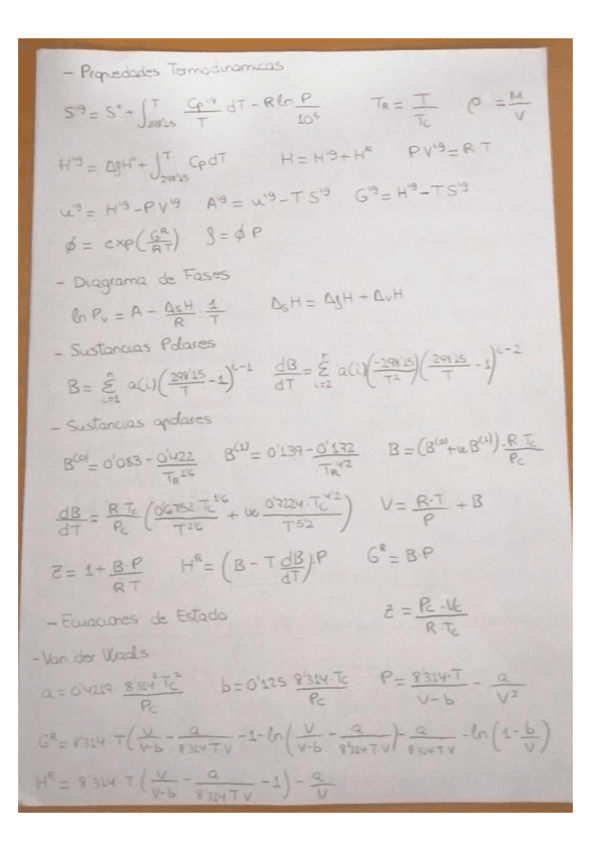 - Propiedades Termodinamicas
S^ig = S° + ∫_298'15^T Cp^ig/T dT - R ln P/10^5   T_R = T/Tc   ρ = M/V
H^ig = ΔfH° + ∫_298'15^T Cp dT   H = H^ig + H^R   PV^ig = RT
u^ig = H^ig - PV^ig   A^ig = u^ig - T·S^ig   G^ig = H^ig - TS^ig
φ = exp(G^R/RT)   f = φ P
- Diagrama de Fases
ln Pv = A - ΔsH/R · 1/T   ΔsH = ΔfH + ΔvH
- Sustancias Polares
B = Σ_i=1^n a(i) (298'15/T - 1)^i-1   dB/dT = Σ_i=2^n a(i) (-298'15/T^2) (298'15/T - 1)^i-2
- Sustancias apolares
B^(0) = 0'083 - 0'422/T_R^1'6   B^(1) = 0'139 - 0'172/T_R^4'2   B = (B^(0) + w B^(1)) · R·Tc/Pc
dB/dT = R·Tc/Pc (0'6752·Tc^1'6/T^2'6 + w 0'7224·Tc^4'2/T^5'2)   V = R·T/P + B
Z = 1 + B·P/RT   H^R = (B - T dB/dT)·P   G^R = B·P
- Ecuaciones de Estado   Z = Pc·Vc/R·Tc
- Van der Waals
a = 0'4219 8'314^2 Tc^2/Pc   b = 0'125 8'314·Tc/Pc   P = 8'314·T/V-b - a/V^2
G^R = 8'314 T (V/V-b - a/8'314·T·V - 1 - ln(V/V-b - a/8'314T·V) - a/8'314T·V - ln(1 - b/V)
H^R = 8'314·T (V/V-b - a/8'314·T V - 1) - a/V